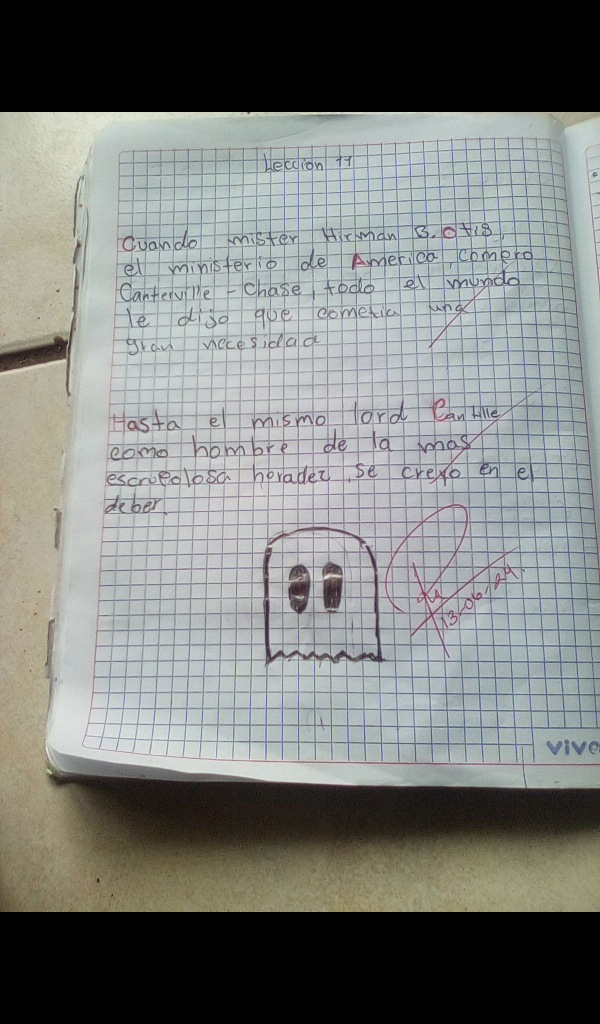 Leccion 11
Cuando mister Hirman B. Otis,
el ministerio de America, compro
Canterville - Chase, todo el mundo
le dijo que cometia una
gran necesidad
Hasta el mismo lord Cantille
como hombre de la mas
escrupolosa horadez, se creyo en el
deber.
13-06-24.
Vive